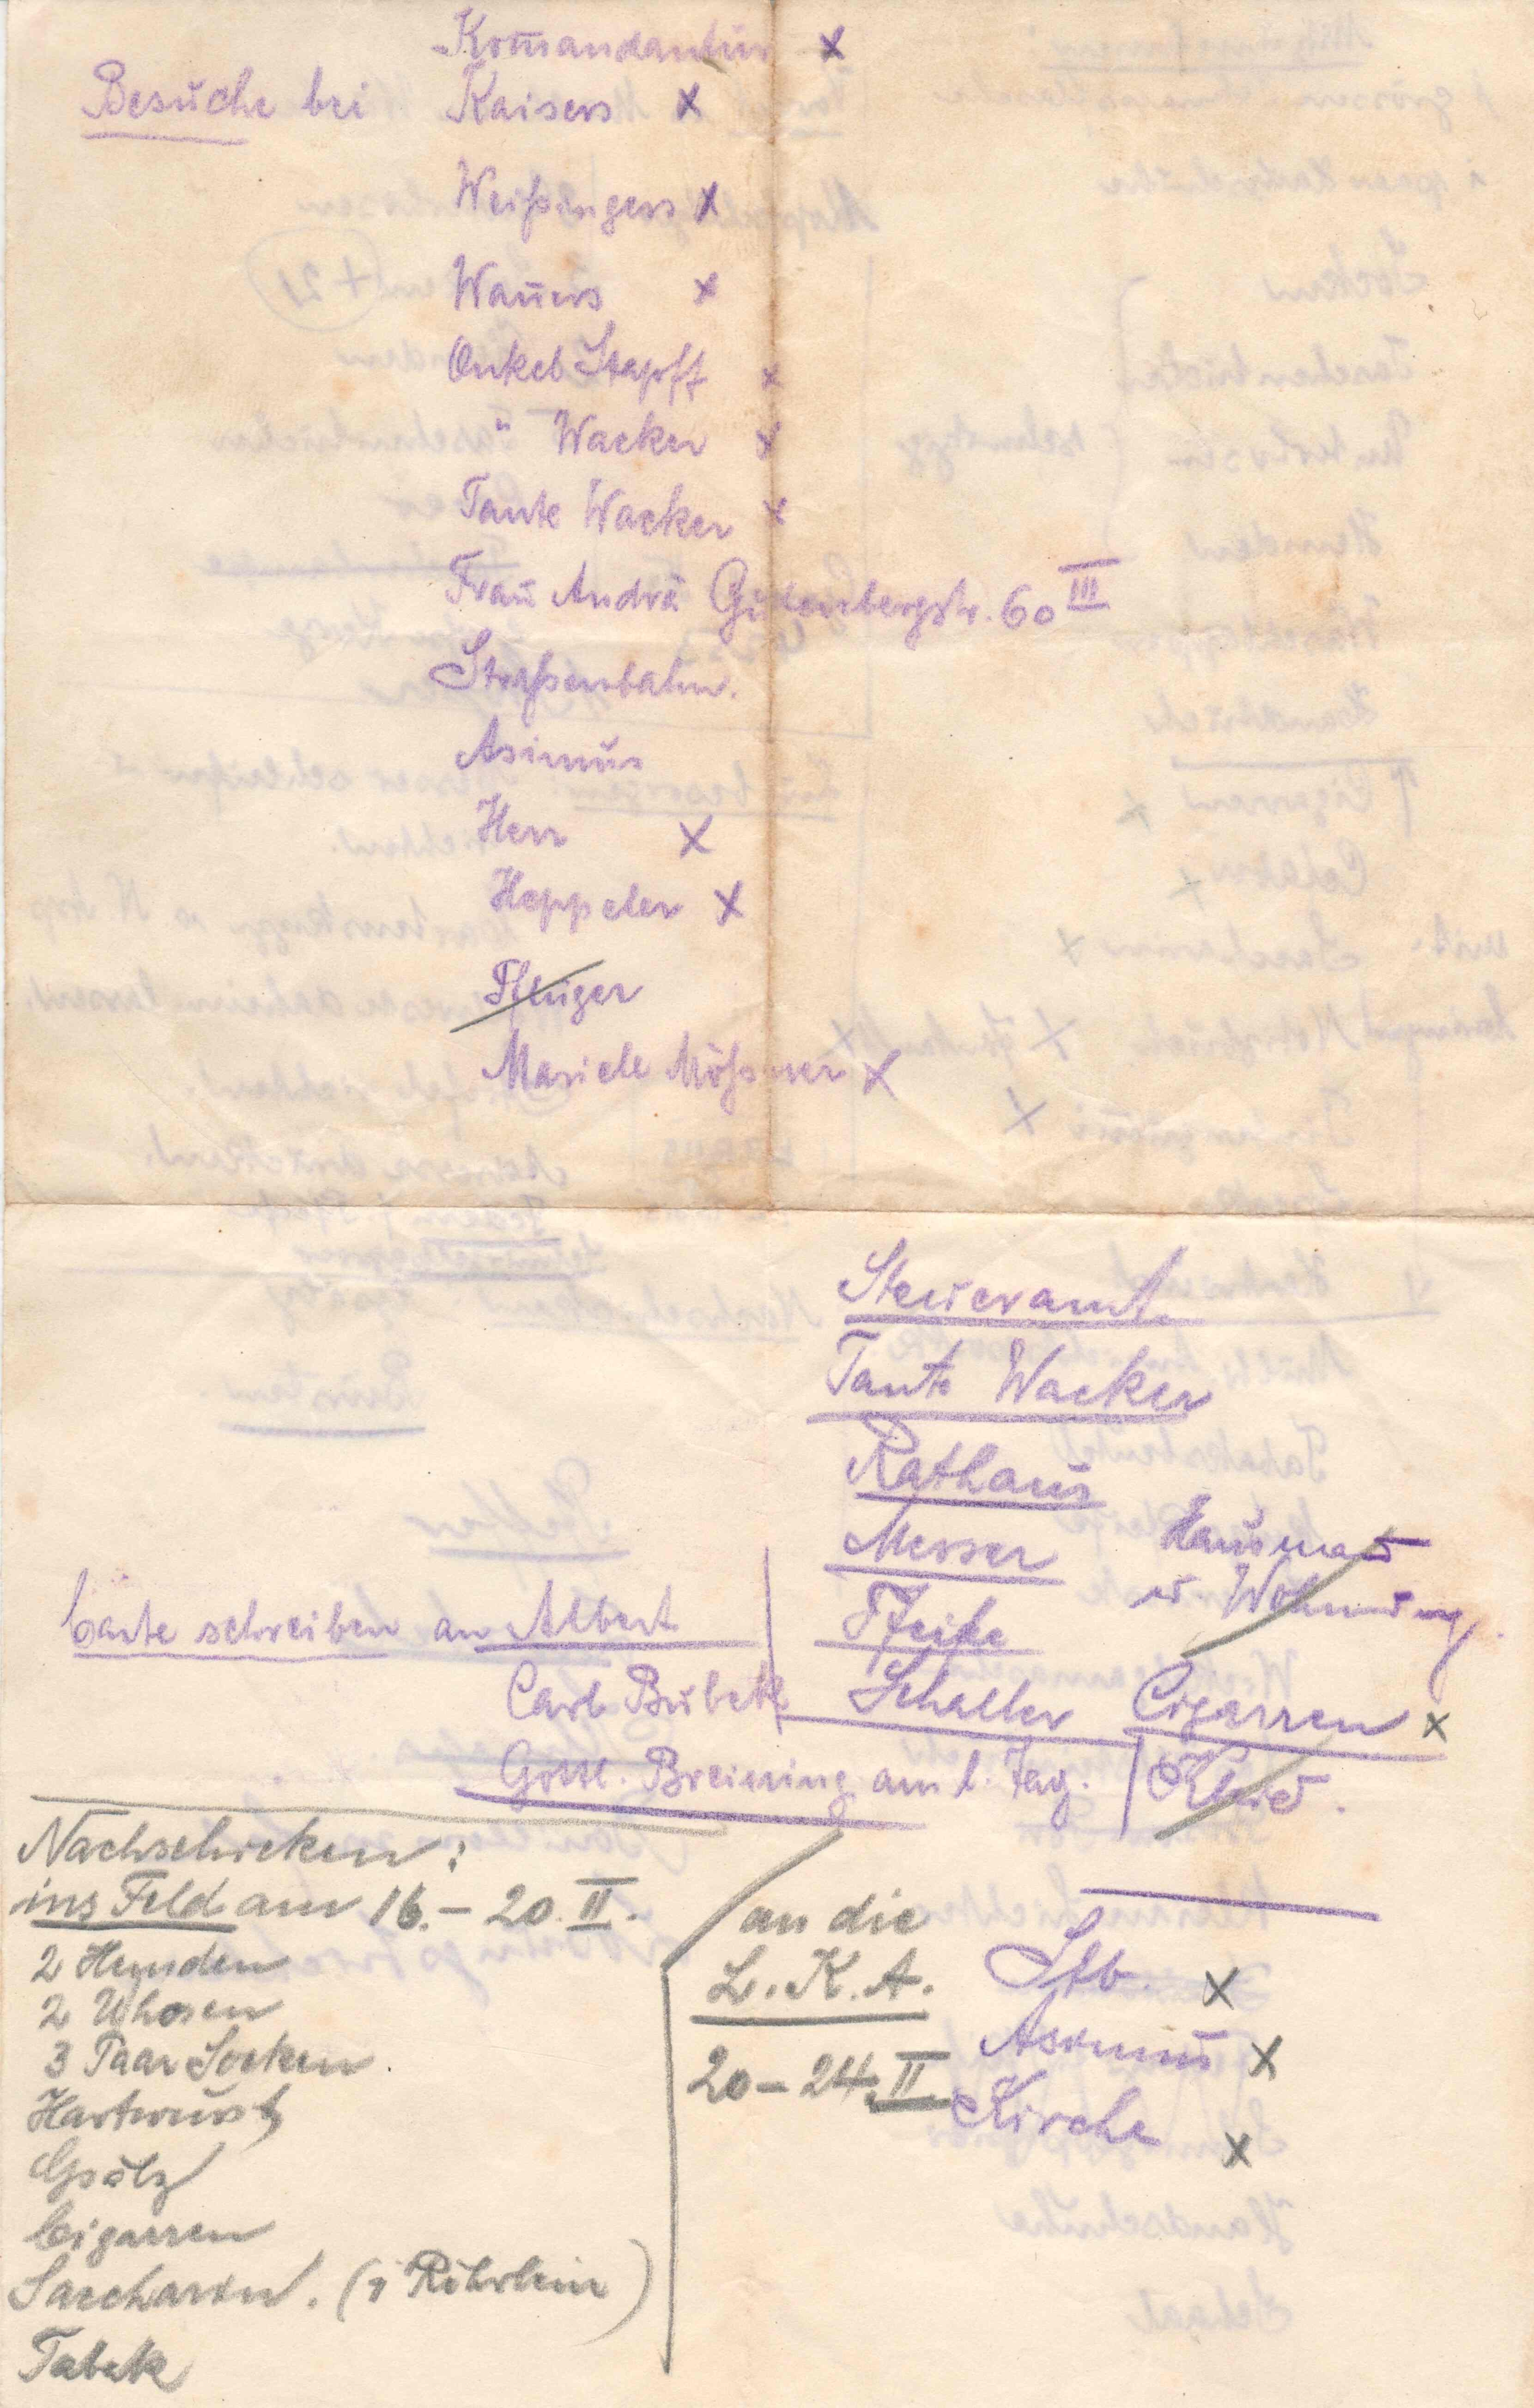 Kom̄andantur x
Besuche bei Kaisers x
Weißingers x
Wauers x
Onkel Stapff x
" Wacker x
Tante Wacker x
Frau Andrä Gutenbergstr. 60 III
Straßenbahn.
Asimus
Herr x
Heppeler x
Pfluger
Mariele Mößner x
Steueramt.
Tante Wacker
Rathaus
Messer
Pfeife
Schaller
Hausmad
u. Wohnung.
Cigarren x
Kleid.
Carte schreiben an Albert
Carl Bubek
Gottl. Breining am l. Tag.
Nachschicken:
ins Feld am 16.– 20. II.
2 Hemden
2 Uhosen
3 Paar Socken.
Hartwurst
Gsälz
Cigarren
Saccharin. (1 Röhrlein)
Tabak
an die
L.K.A.
20–24. II
Stb. x
Asimus x
Kirche x